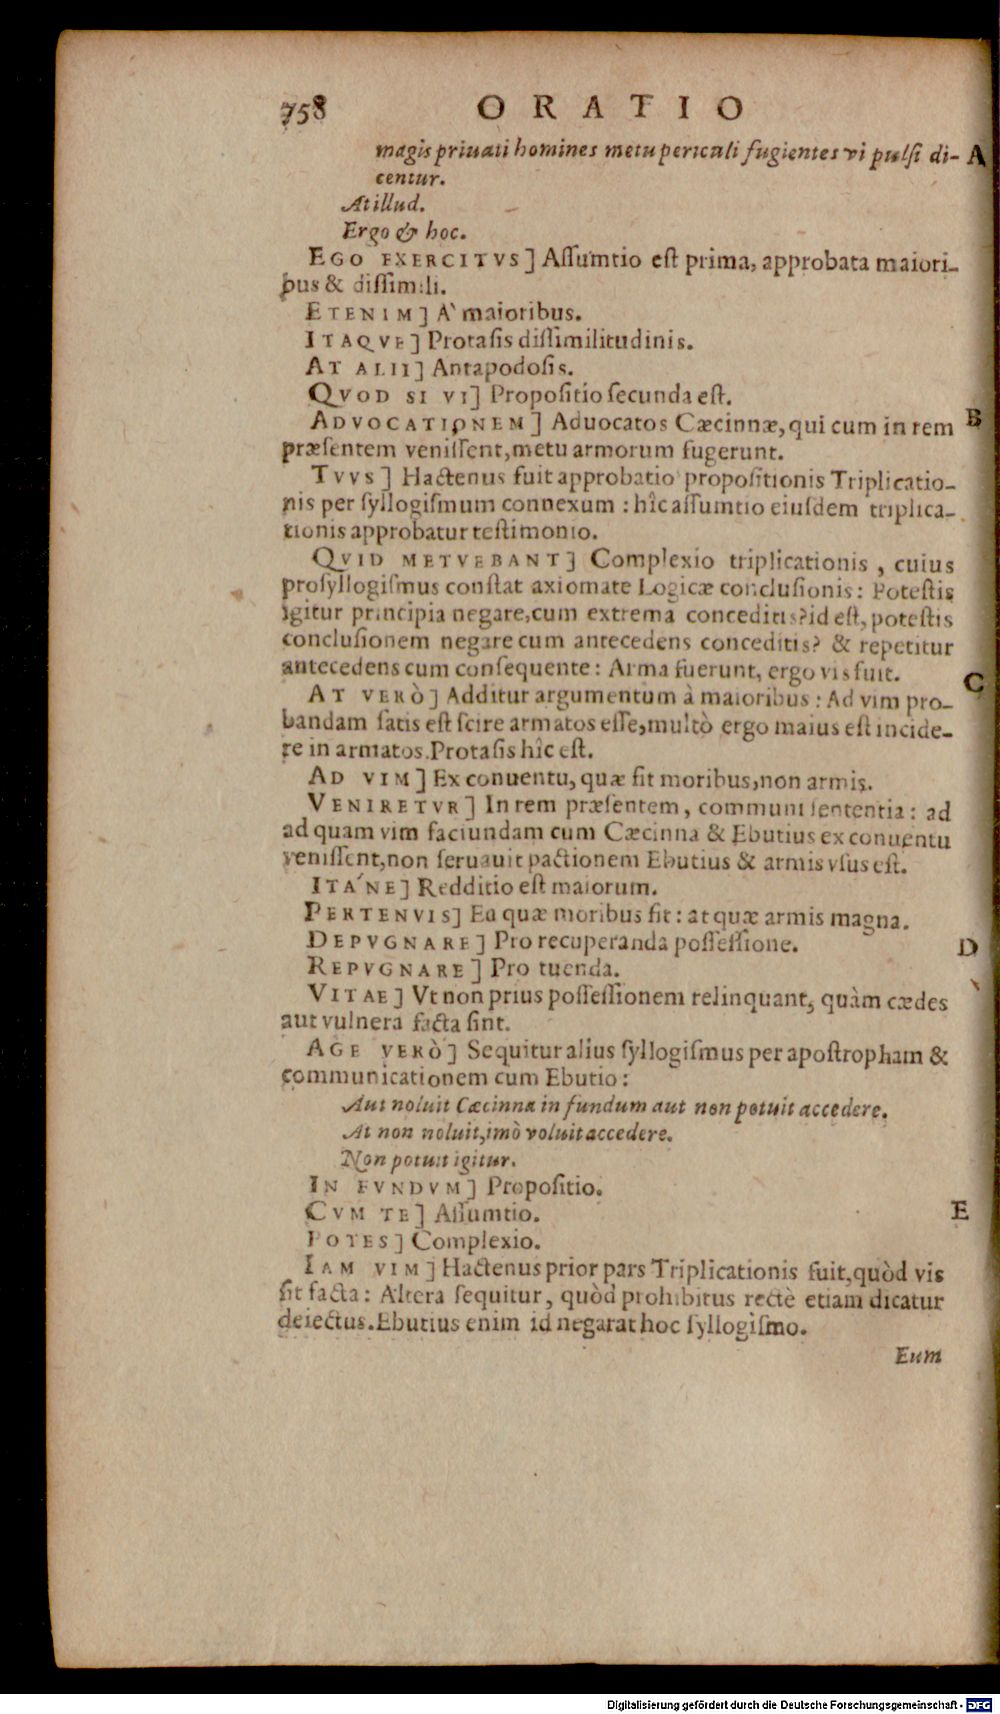 758 ORATIO
magis priuati homines metu periculi fugientes vi pulſi di- A
centur.
At illud.
Ergo & hoc.
EGO EXERCITVS] Aſſumtio eſt prima, approbata maiori-
bus & diſſimili.
ETENIM] A` maioribus.
ITAQVE] Protaſis diſſimilitudinis.
AT ALII] Antapodoſis.
QVOD SI VI] Propoſitio ſecunda eſt.
ADVOCATIONEM] Aduocatos Cæcinnæ, qui cum in rem B
præſentem veniſſent, metu armorum fugerunt.
TVVS] Hactenus fuit approbatio propoſitionis Triplicatio-
nis per ſyllogiſmum connexum : hîc aſſumtio eiuſdem triplica-
tionis approbatur teſtimonio.
QVID METVEBANT] Complexio triplicationis, cuius
proſyllogiſmus conſtat axiomate Logicæ concluſionis: Poteſtis
igitur principia negare, cum extrema conceditis? id eſt, poteſtis
concluſionem negare cum antecedens conceditis? & repetitur
antecedens cum conſequente: Arma fuerunt, ergo vis fuit. C
AT VERÒ] Additur argumentum à maioribus: Ad vim pro-
bandam ſatis eſt ſcire armatos eſſe, multò ergo maius eſt incide-
re in armatos. Protaſis hîc eſt.
AD VIM] Ex conuentu, quæ fit moribus, non armis.
VENIRETVR] In rem præſentem, communi ſententia: ad
ad quam vim faciundam cum Cæcinna & Ebutius ex conuentu
veniſſent, non ſeruauit pactionem Ebutius & armis vſus eſt.
ITA´NE] Redditio eſt maiorum.
PERTENVIS] Ea quæ moribus fit: at quæ armis magna.
DEPVGNARE] Pro recuperanda poſſeſſione. D
REPVGNARE] Pro tuenda.
VITAE] Vt non prius poſſeſſionem relinquant, quàm cædes
aut vulnera facta ſint.
AGE VERÒ] Sequitur alius ſyllogiſmus per apoſtropham &
communicationem cum Ebutio:
Aut noluit Cæcinna in fundum aut non potuit accedere.
At non noluit, imò voluit accedere.
Non potuit igitur.
IN FVNDVM] Propoſitio.
CVM TE] Aſſumtio. E
POTES] Complexio.
IAM VIM] Hactenus prior pars Triplicationis fuit, quòd vis
ſit facta: Altera ſequitur, quòd prohibitus rectè etiam dicatur
deiectus. Ebutius enim id negarat hoc ſyllogiſmo.
Eum
Digitalisierung gefördert durch die Deutsche Forschungsgemeinschaft - DFG